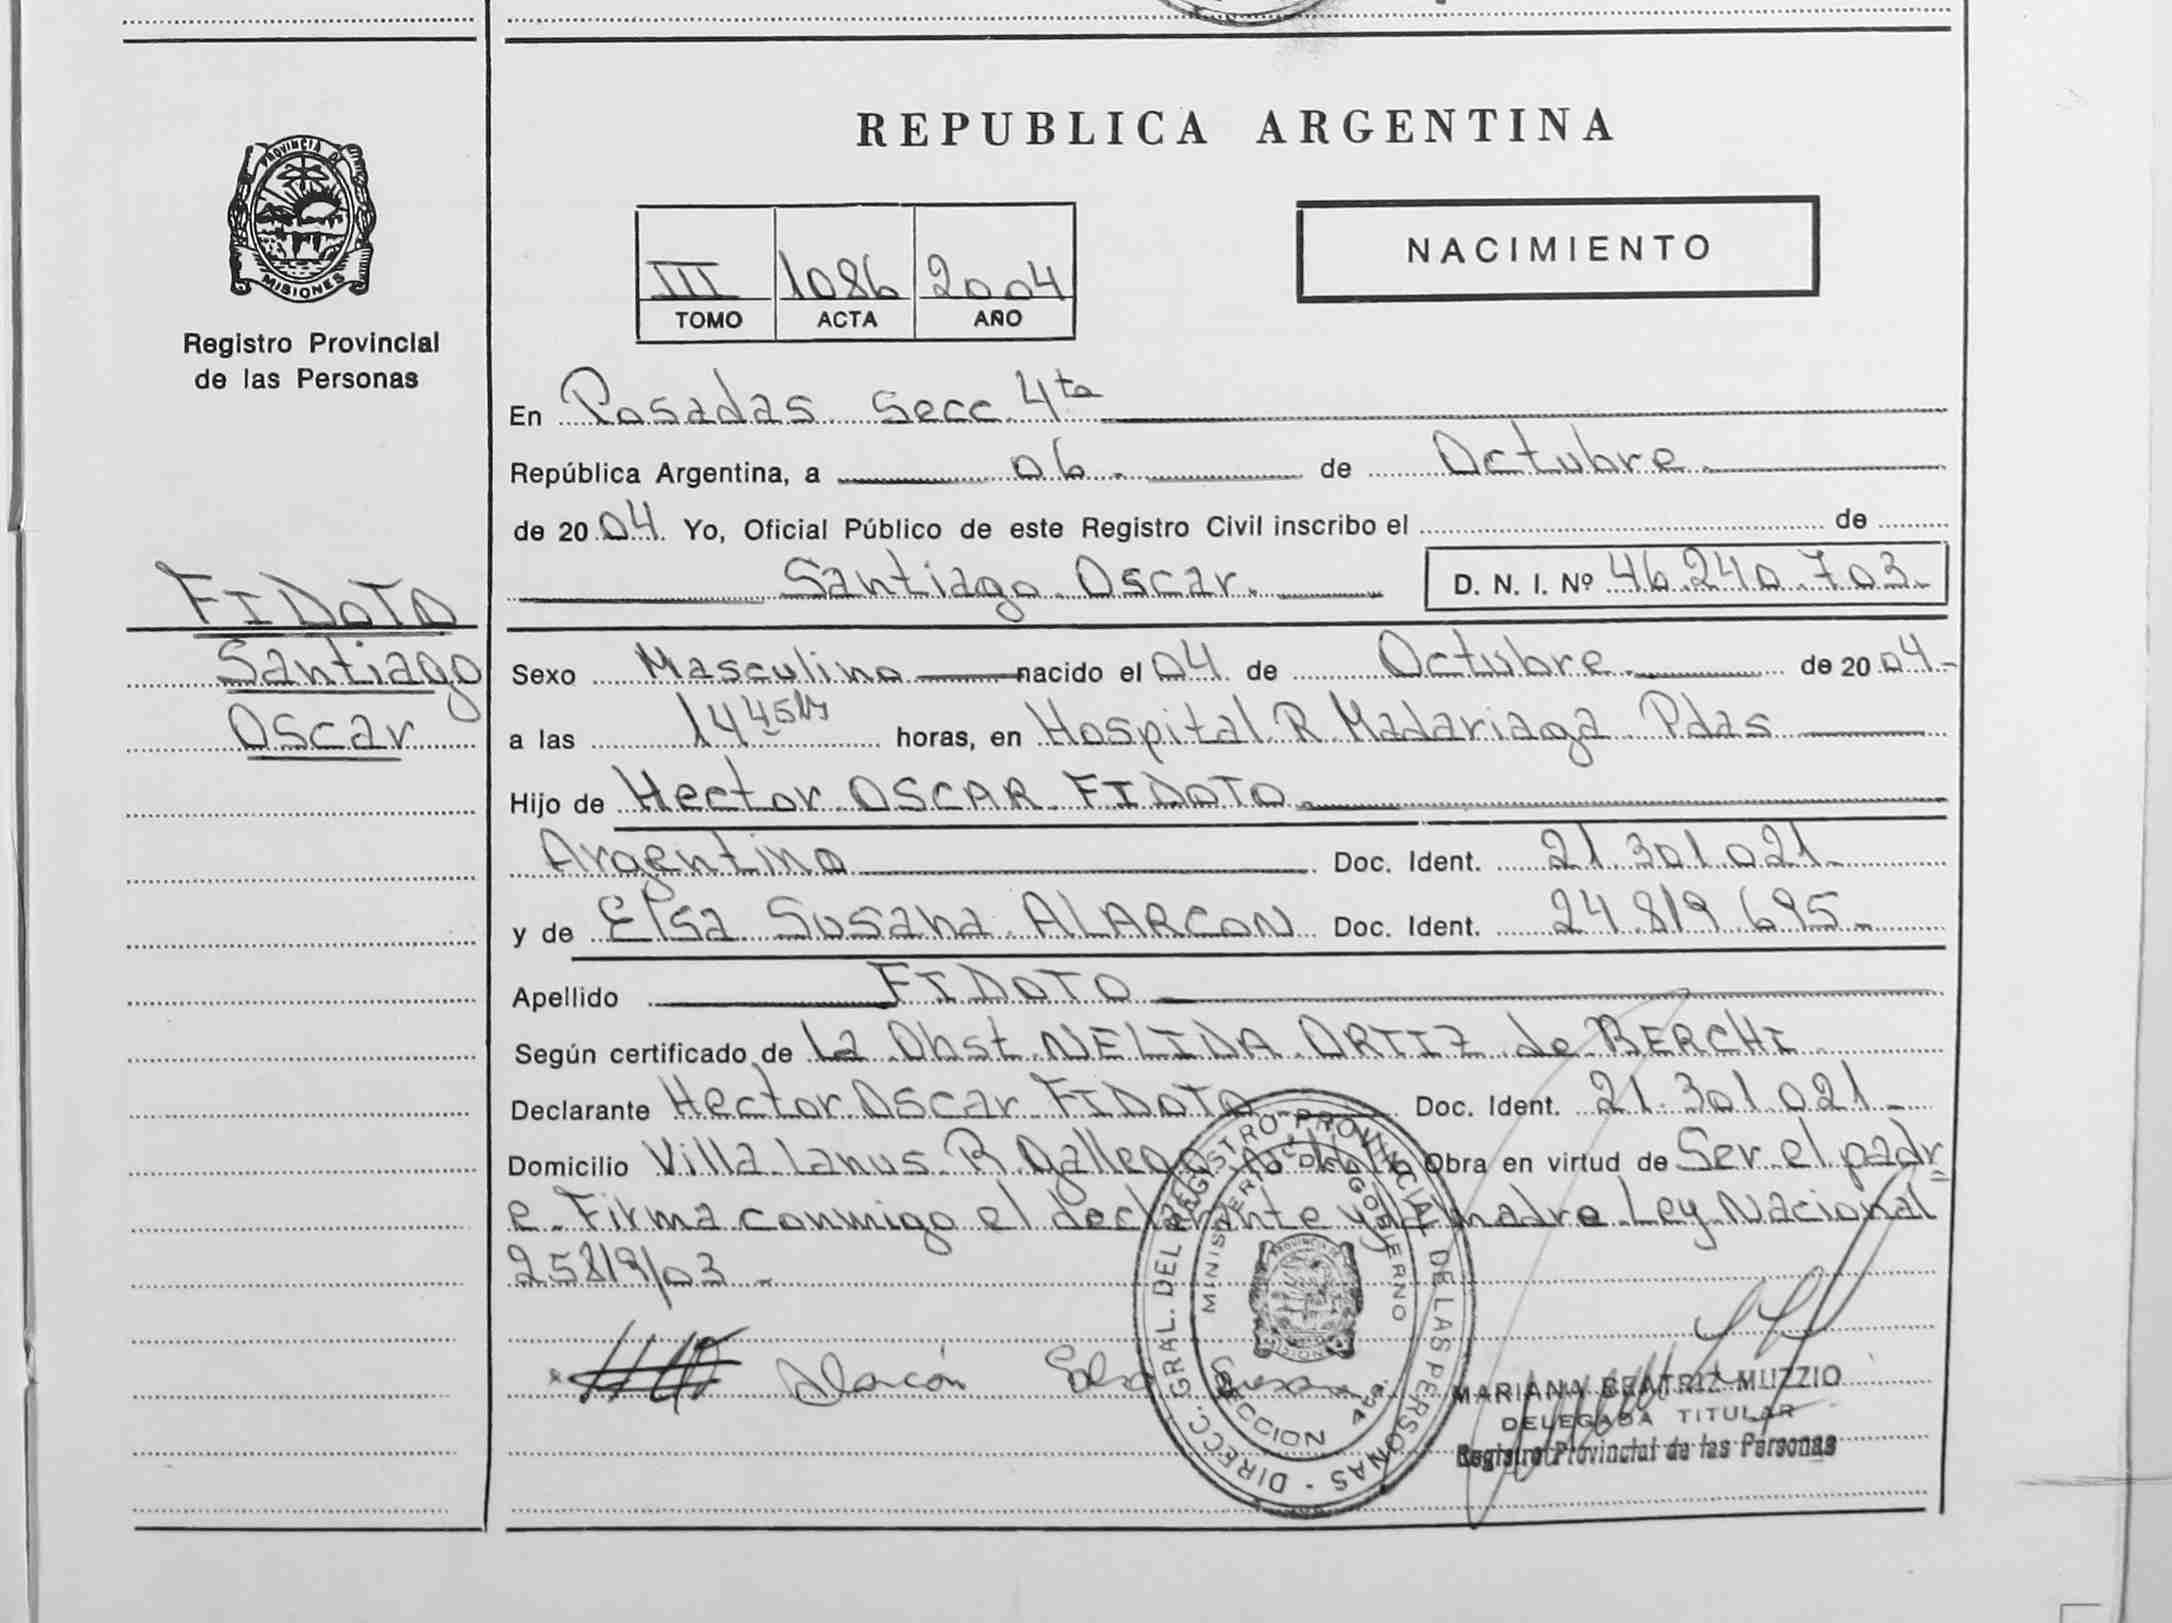 PROVINCIA DE
MISIONES
Registro Provincial
de las Personas
FIDOTO
Santiago
Oscar
REPUBLICA ARGENTINA
III 1086 2004
TOMO ACTA AÑO
NACIMIENTO
En Posadas Secc 4ta
República Argentina, a 06 de Octubre
de 2004 Yo, Oficial Público de este Registro Civil inscribo el de
Santiago Oscar. D. N. I. Nº 46.240.703.-
Sexo Masculino nacido el 04 de Octubre de 2004-
a las 14 45 horas, en Hospital R Madariaga Pdas
Hijo de Hector OSCAR FIDOTO
Argentino Doc. Ident. 21.301.021-
y de Elsa Susana ALARCON Doc. Ident. 24.819.695-
Apellido FIDOTO
Según certificado de la Obst NELIDA ORTIZ de BERCHI
Declarante Hector Oscar FIDOTO Doc. Ident. 21.301.021-
Domicilio Villa Lanus R Obra en virtud de Ser el padr
e-Firma conmigo el declarante y madre Ley Nacional
25819/03-
Alarcón Elsa Susana
DIRECC. GRAL. DEL REGISTRO PROVINCIAL DE LAS PERSONAS
MINISTERIO DE GOBIERNO
SECCION 4ta.
MARIANA BEATRIZ MUZZIO
DELEGADA TITULAR
Registro Provincial de las Personas